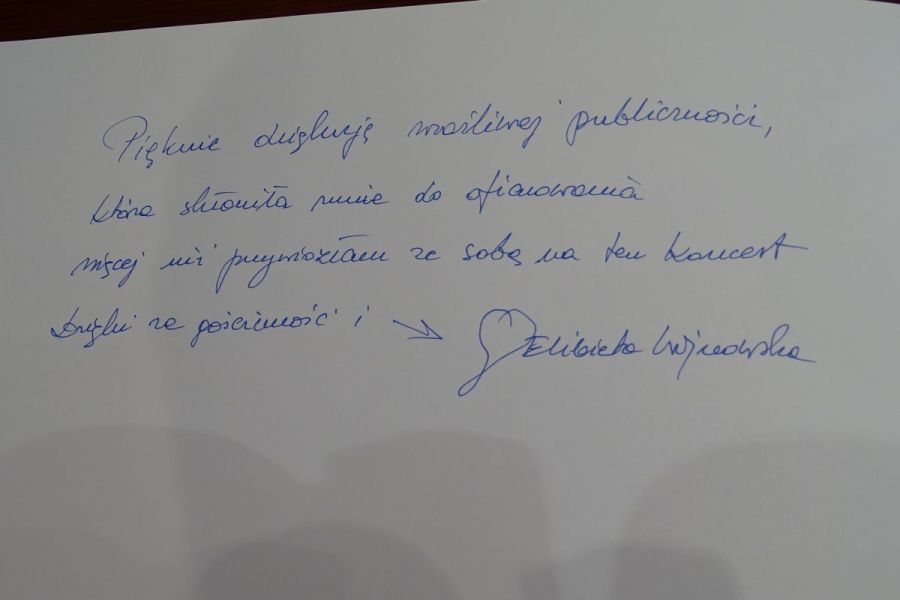 Pięknie dziękuję wrażliwej publiczności,
która skłoniła mnie do ofiarowania
więcej niż przywiozłam ze sobą na ten koncert
Dzięki za gościnność i
Elżbieta Wojnowska